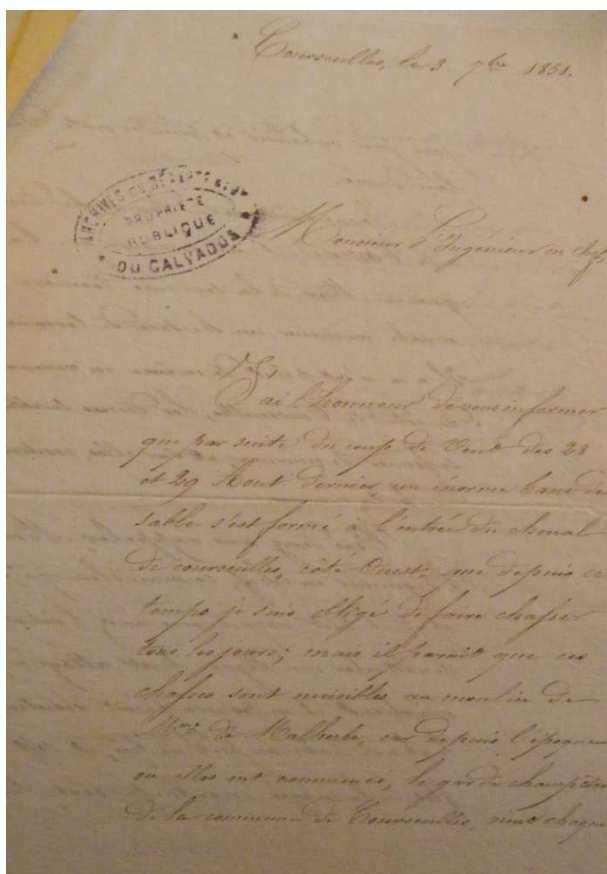 Courseulles, le 3 7bre 1851.
ARCHIVES DU DÉPARTEMENT
PROPRIÉTÉ
PUBLIQUE
DU CALVADOS
Monsieur L'Ingénieur en chef,
J'ai l'honneur de vous informer
que par suite du coup de Vent des 28
et 29 Aout dernier, un énorme banc de
sable s'est formé à l'entrée du chenal
de courseulles, côté Ouest, que depuis ce
temps je suis obligé de faire chasser
tous les jours; mais il parait que ces
chasses sont nuisibles au moulin de
Mme de Malherbe, car depuis l'époque
où elles ont commencé, le garde champêtre
de la commune de Courseulles, vient chaque